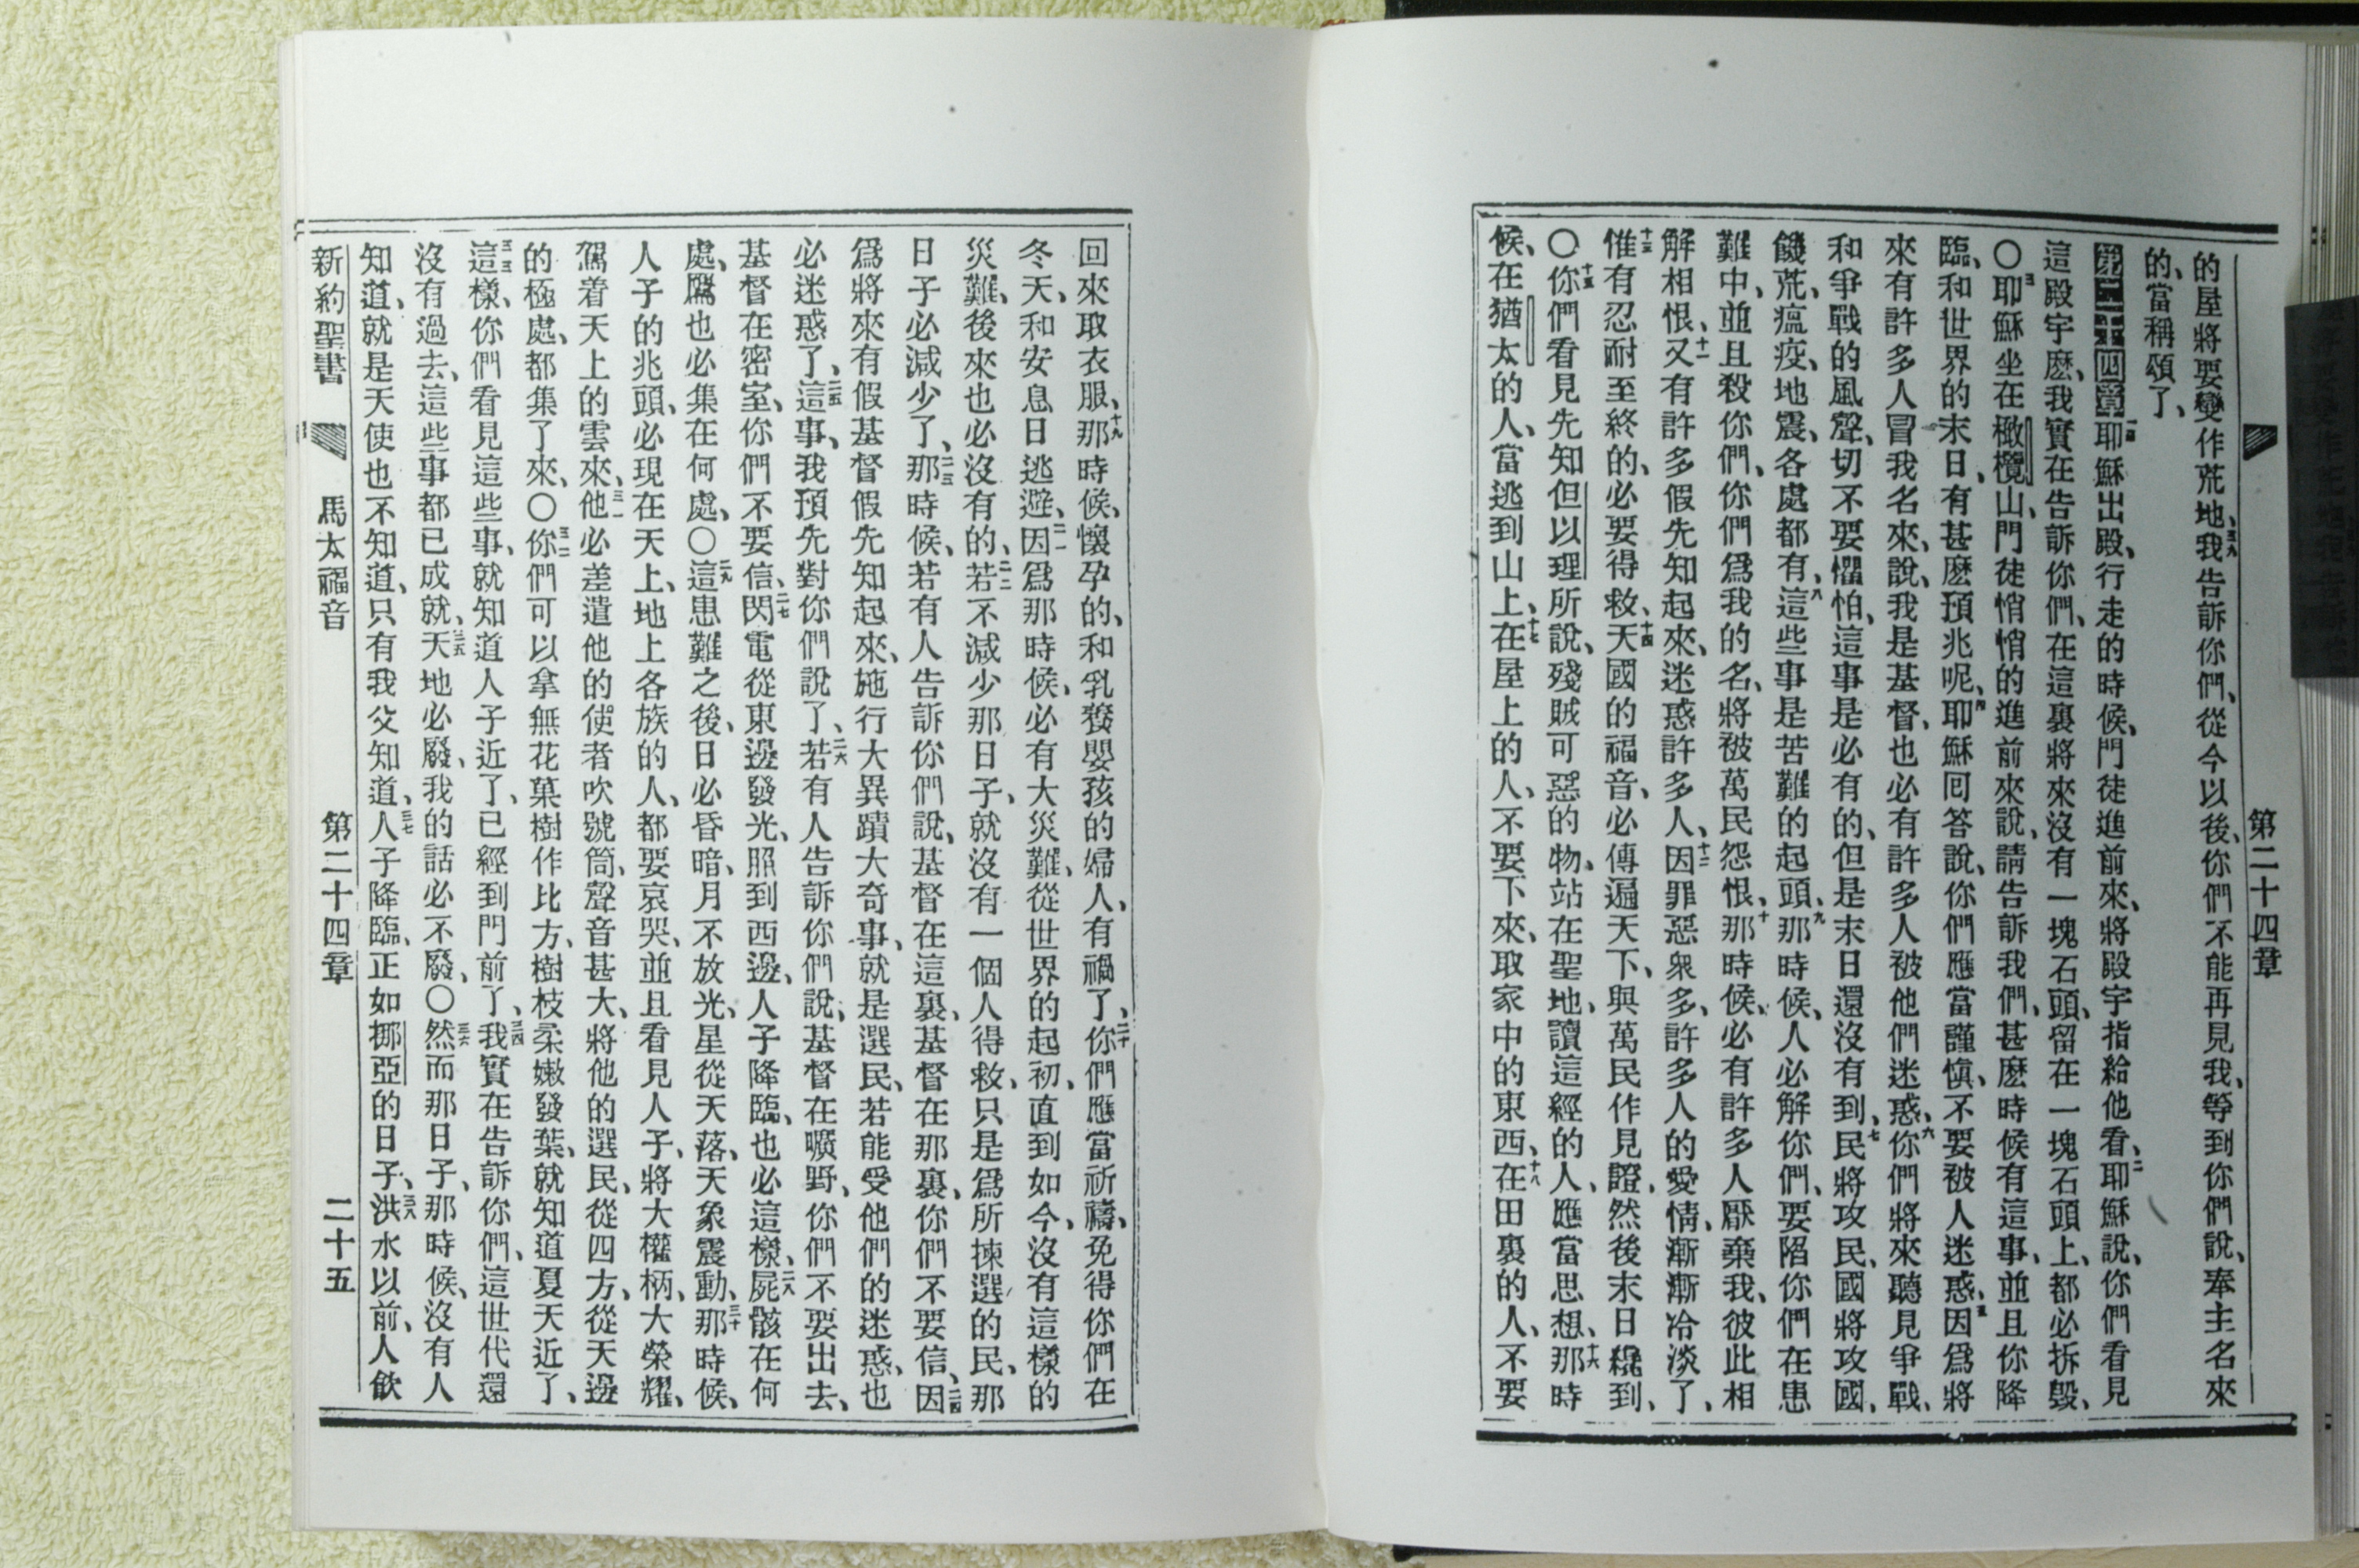 第二十四章
的屋將要變作荒地、三九我告訴你們、從今以後、你們不能再見我、等到你們說、奉主名來
的、當稱頌了、
第二十四章一耶穌出殿、行走的時候、門徒進前來、將殿宇指給他看、二耶穌說、你們看見
這殿宇麽、我實在告訴你們、在這裏將來沒有一塊石頭、留在一塊石頭上、都必拆毀、
〇三耶穌坐在橄欖山、門徒悄悄的進前來說、請告訴我們、甚麽時候有這事、並且你降
臨、和世界的末日、有甚麽預兆呢、四耶穌回答說、你們應當謹愼、不要被人迷惑、五因爲將
來有許多人冒我名來、說、我是基督、也必有許多人被他們迷惑、六你們將來聽見爭戰、
和爭戰的風聲、切不要懼怕、這事是必有的、但是末日還沒有到、七民將攻民、國將攻國、
饑荒、瘟疫、地震、各處都有、八這些事是苦難的起頭、九那時候、人必解你們、要陷你們在患
難中、並且殺你們、你們爲我的名、將被萬民怨恨、十那時候、必有許多人厭棄我、彼此相
解相恨、十一又有許多假先知起來、迷惑許多人、十二因罪惡衆多、許多人的愛情、漸漸冷淡了、
十三惟有忍耐至終的、必要得救、十四天國的福音、必傳遍天下、與萬民作見證、然後末日纔到、
〇十五你們看見先知但以理所說、殘賊可惡的物、站在聖地、讀這經的人、應當思想、十六那時
候、在猶太的人、當逃到山上、十七在屋上的人、不要下來、取家中的東西、十八在田裏的人、不要
回來取衣服、十九那時候、懷孕的、和乳養嬰孩的婦人、有禍了、二十你們應當祈禱、免得你們在
冬天、和安息日逃避、二一因爲那時候、必有大災難、從世界的起初、直到如今、沒有這樣的
災難、後來也必沒有的、二二若不減少那日子、就沒有一個人得救、只是爲所揀選的民、那
日子必減少了、二三那時候、若有人告訴你們說、基督在這裏、基督在那裏、你們不要信、二四因
爲將來有假基督假先知起來、施行大異蹟大奇事、就是選民、若能受他們的迷惑、也
必迷惑了、二五這事、我預先對你們說了、二六若有人告訴你們說、基督在曠野、你們不要出去、
基督在密室、你們不要信、二七閃電從東邊發光、照到西邊、人子降臨、也必這樣、二八屍骸在何
處、鷹也必集在何處、〇二九這患難之後、日必昏暗、月不放光、星從天落、天象震動、三十那時候、
人子的兆頭、必現在天上、地上各族的人、都要哀哭、並且看見人子、將大權柄、大榮耀、
駕着天上的雲來、三一他必差遣他的使者吹號筒、聲音甚大、將他的選民、從四方、從天邊
的極處、都集了來、〇三二你們可以拿無花菓樹作比方、樹枝柔嫩發葉、就知道夏天近了、
三三這樣、你們看見這些事、就知道人子近了、已經到門前了、三四我實在告訴你們、這世代還
沒有過去、這些事都已成就、三五天地必廢、我的話必不廢、〇三六然而那日子、那時候、沒有人
知道、就是天使也不知道、只有我父知道、三七人子降臨、正如挪亞的日子、三八洪水以前、人飲
新約聖書 馬太福音 第二十四章 二十五